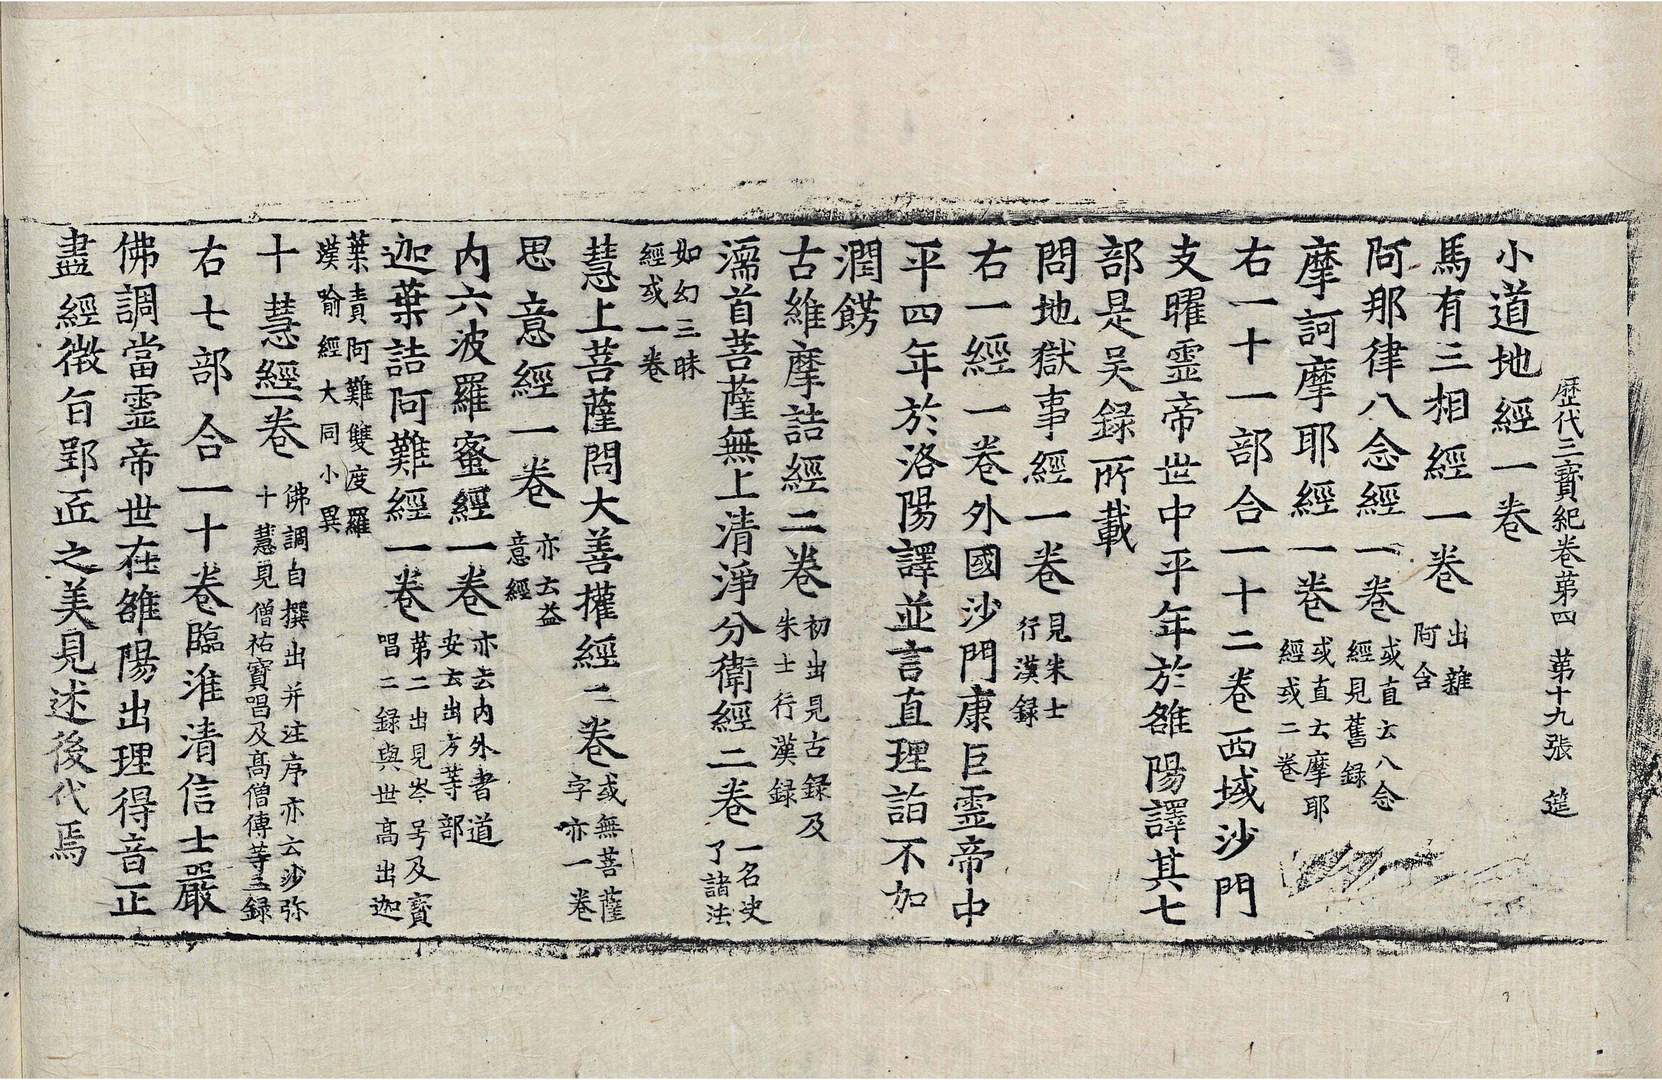 歷代三寶紀卷第四　第十九張　筵
小道地經一卷
馬有三相經一卷出雜阿含
阿那律八念經一卷或直云八念經見舊録
摩訶摩耶經一卷或直云摩耶經或二卷
右一十一部合一十二卷西域沙門
支曜靈帝世中平年於雒陽譯其七
部是吴録所載
問地獄事經一卷見朱士行漢録
右一經一卷外國沙門康巨靈帝中
平四年於洛陽譯並言直理詣不加
潤餝
古維摩詰經二卷初出見古録及朱士行漢録
濡首菩薩無上清淨分衛經二卷一名决了諸法
如幻三昧經或一卷
慧上菩薩問大善權經二卷或無菩薩字亦一卷
思意經一卷亦云益意經
内六波羅蜜經一卷亦云内外書道安云出方等部
迦葉詰阿難經一卷第二出見岑号及寳唱二録與世高出迦
葉責阿難雙度羅漢喻經大同小異
十慧經一卷佛調自撰出并注序亦云沙弥十慧見僧祐寳唱及髙僧傳等三録
右七部合一十卷臨淮清信士嚴
佛調當靈帝世在雒陽出理得音正
盡經微旨郢匠之美見述後代焉